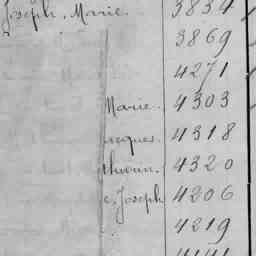 Joseph, Marie. 3834
3869
4271
Marie. 4303
cques. 4318
4320
e, Joseph 4206
4219